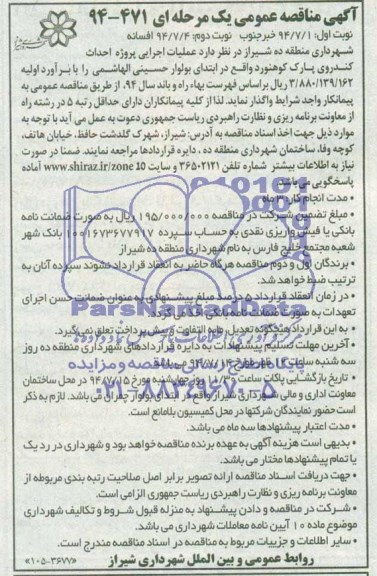 آگهی مناقصه عمومی یک مرحله ای ۴۷۱-۹۴
نوبت اول: ۹۴/۷/۱ خبرجنوب نوبت دوم: ۹۴/۷/۴ افسانه
شهرداری منطقه ده شیراز در نظر دارد عملیات اجرایی پروژه احداث
کندروی پارک کوهنورد واقع در ابتدای بولوار حسینی الهاشمی را با برآورد اولیه
۳/۸۸۰/۱۳۹/۱۶۲ ریال براساس فهرست بهاء راه و باند سال ۹۴، از طریق مناقصه عمومی به
پیمانکار واجد شرایط واگذار نماید. لذا از کلیه پیمانکاران دارای حداقل رتبه ۵ در رشته راه
از معاونت برنامه ریزی و نظارت راهبردی ریاست جمهوری دعوت به عمل می آید با توجه به
موارد ذیل جهت اخذ اسناد مناقصه به آدرس: شیراز، شهرک گلدشت حافظ، خیابان هاتف،
کوچه وفا، ساختمان شهرداری منطقه ده، دایره قراردادها مراجعه نمایند. ضمنا در صورت
نیاز به اطلاعات بیشتر شماره تلفن ۳۶۵۰۲۱۲۱ و سایت www.shiraz.ir/zone 10 آماده
پاسخگویی می باشد.
• مدت انجام کار: ۳ ماه
• مبلغ تضمین شرکت در مناقصه ۱۹۵/۰۰۰/۰۰۰ ریال به صورت ضمانت نامه
بانکی یا فیش واریزی نقدی به حساب سپرده ۱۰۰۱۶۷۳۶۷۷۹۱۷ بانک شهر
شعبه مجتمع خلیج فارس به نام شهرداری منطقه ده شیراز
• برندگان اول و دوم مناقصه هرگاه حاضر به انعقاد قرارداد نشوند سپرده آنان به
ترتیب ضبط خواهد شد.
• در زمان انعقاد قرارداد ۵ درصد مبلغ پیشنهادی به عنوان ضمانت حسن اجرای
تعهدات به صورت ضمانت نامه بانکی اخذ می گردد.
• به این قرارداد هیچگونه تعدیل، مابه التفاوت و پیش پرداخت تعلق نمی گیرد.
• آخرین مهلت تسلیم پیشنهادات به دایره قراردادهای شهرداری منطقه ده روز
سه شنبه ۹۴/۷/۱۴ می باشد.
تاریخ بازگشایی پاکات ساعت ۱۱/۳۰ روز چهارشنبه مورخ ۹۴/۷/۱۵ در محل ساختمان
معاونت اداری و مالی شهرداری شیراز واقع در ابتدای بولوار چمران می باشد. لازم به ذکر
است حضور نمایندگان شرکتها در محل کمیسیون بلامانع است.
• مدت اعتبار پیشنهادها سه ماه می باشد.
• بدیهی است هزینه آگهی به عهده برنده مناقصه خواهد بود و شهرداری در رد یک
یا تمام پیشنهادها مختار می باشد.
• جهت دریافت اسناد مناقصه ارائه تصویر برابر اصل صلاحیت رتبه بندی مربوطه از
معاونت برنامه ریزی و نظارت راهبردی ریاست جمهوری الزامی است.
• شرکت در مناقصه و دادن پیشنهاد به منزله قبول شروط و تکالیف شهرداری
موضوع ماده ۱۰ آیین نامه معاملات شهرداری می باشد.
• سایر اطلاعات و جزییات مربوط به مناقصه در اسناد مناقصه مندرج است.
روابط عمومی و بین الملل شهرداری شیراز «۱۰۵-۳۶۷۷»
ParsNamadData
پایگاه اطلاع رسانی مناقصه و مزایده
۰۲۱-۸۸۳۴۹۶۷۰-۵